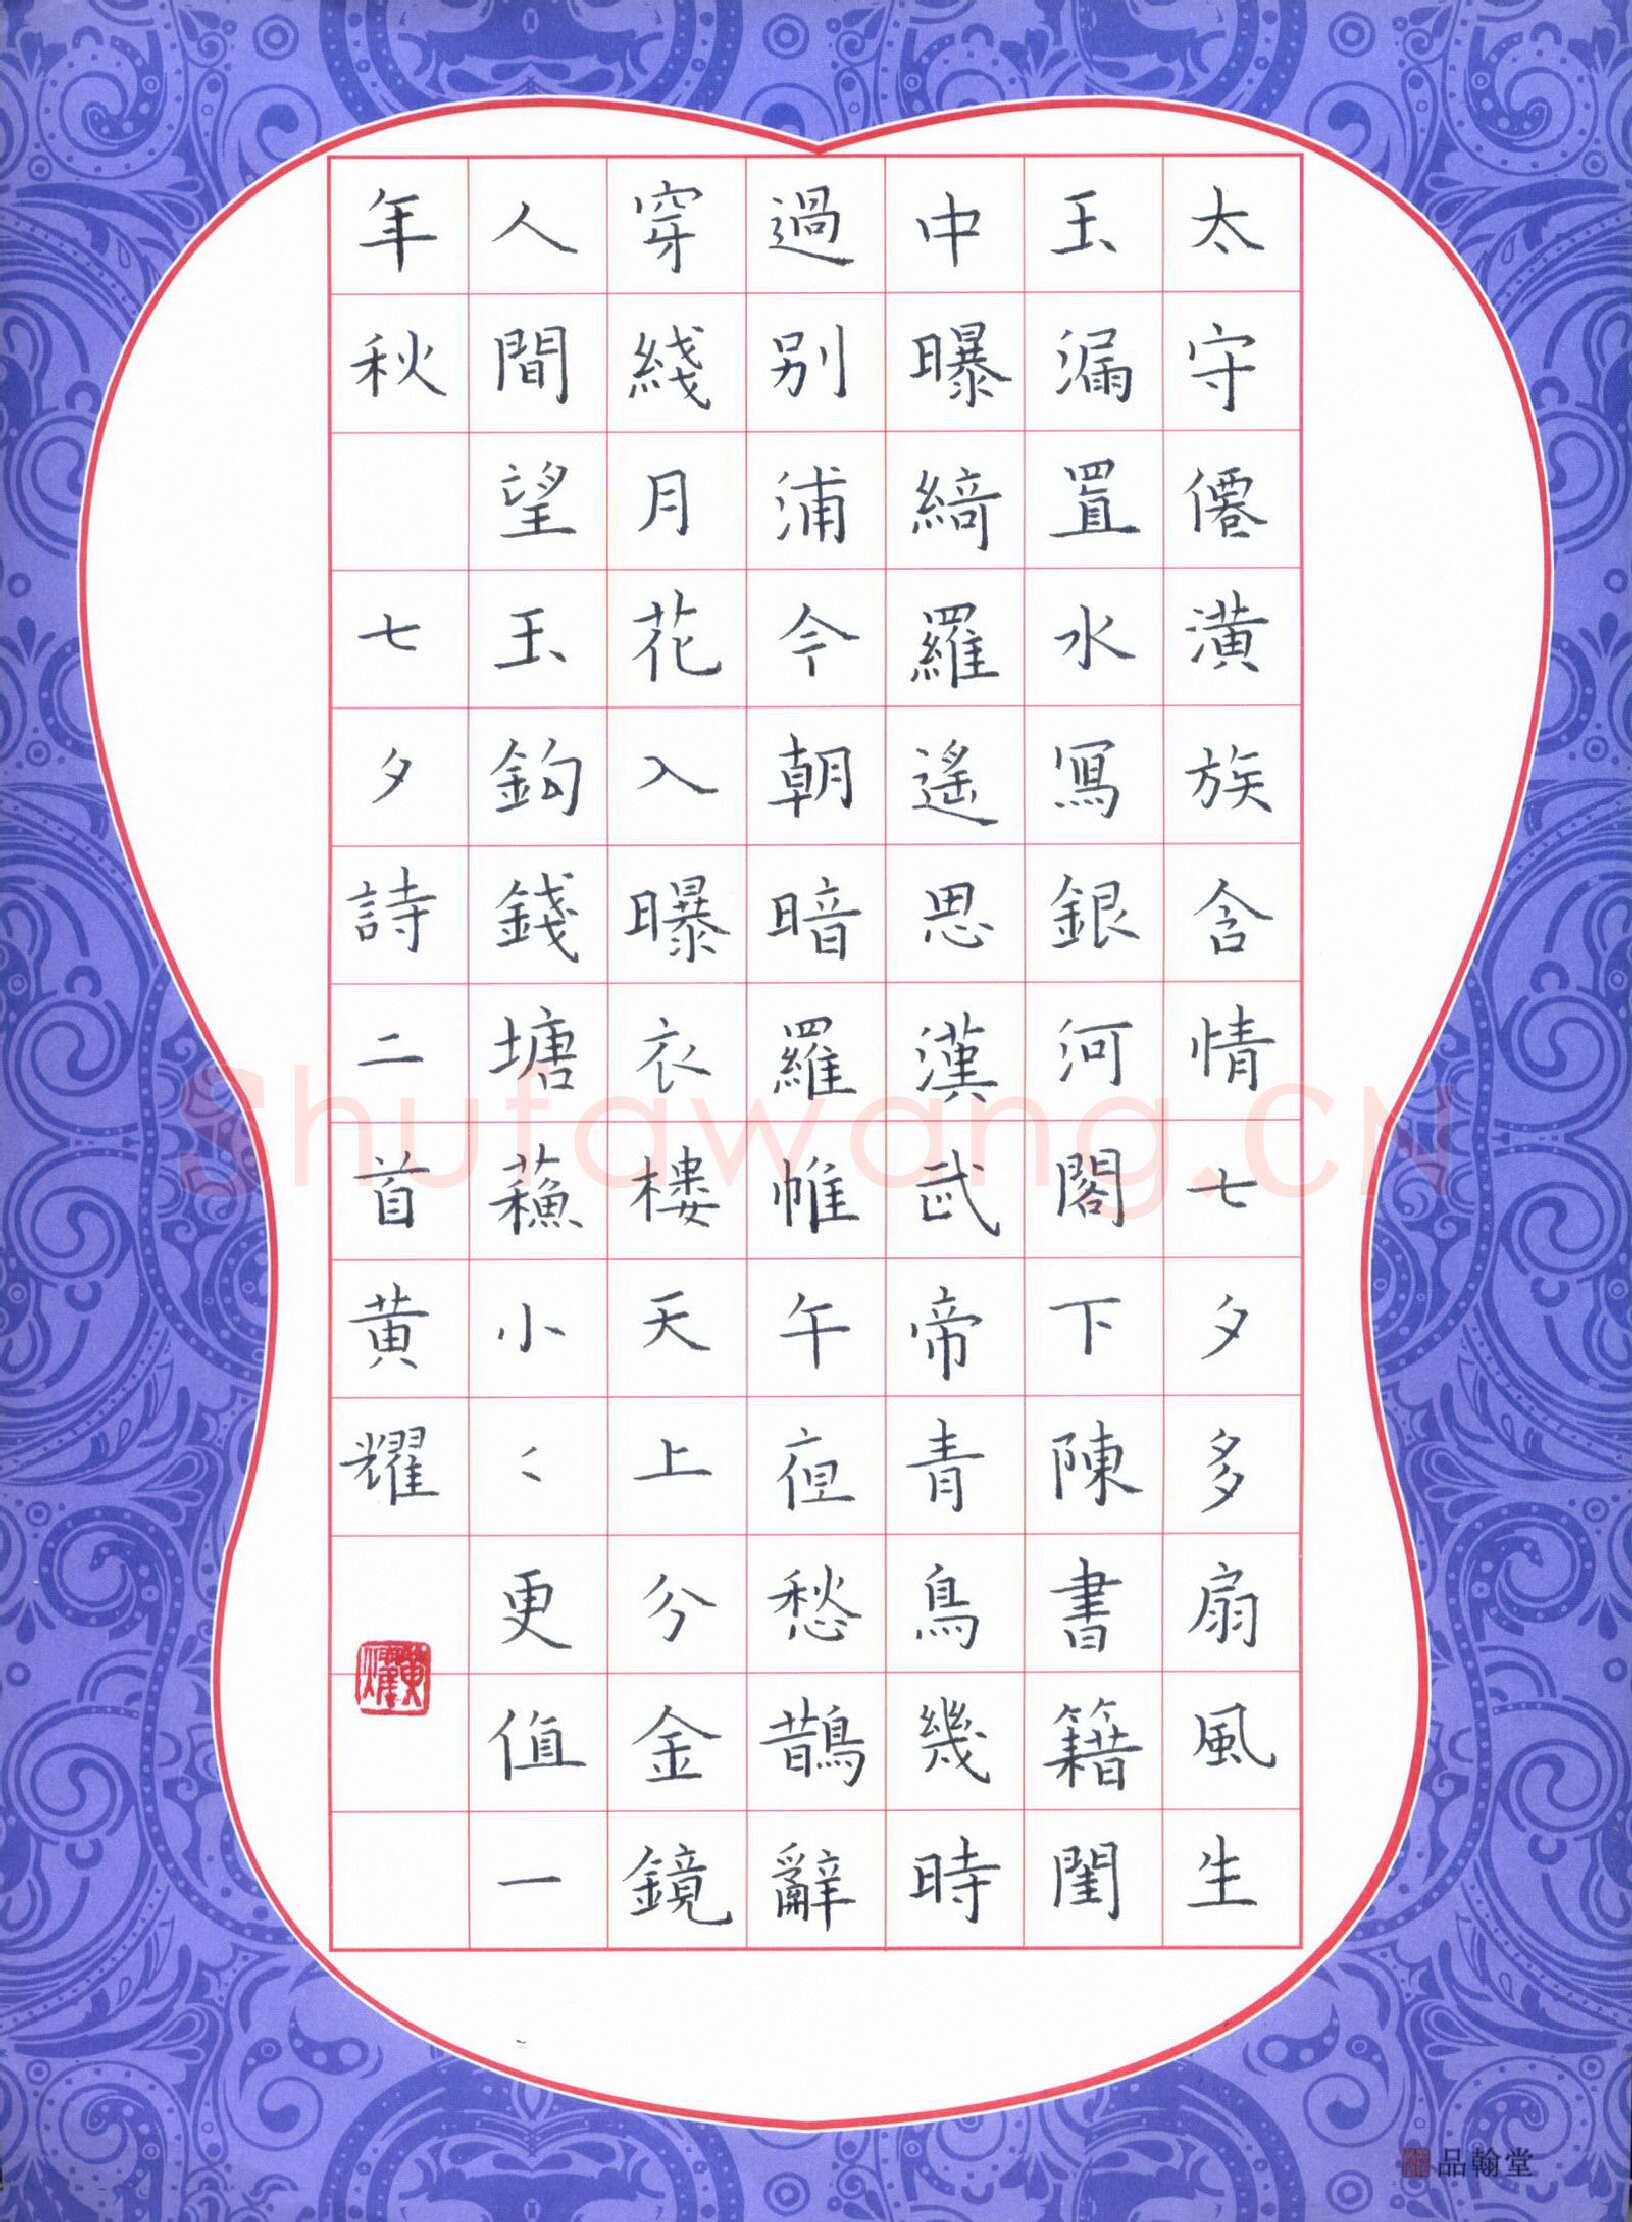 太守僊潢族含情七夕多扇風生
玉漏置水寫銀河閣下陳書籍閨
中曝綺羅遙思漢武帝青鳥幾時
過別浦今朝暗羅帷午夜愁鵲辭
穿綫月花入曝衣樓天上分金鏡
人間望玉鉤錢塘蘓小〻更值一
年秋 七夕詩二首黃耀
黃耀
Shufawang.CN
品翰堂